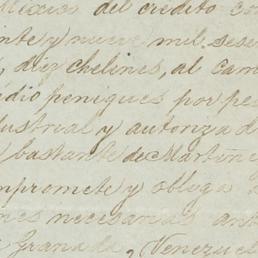 Mexico del credito co
nte y nueve mil sese
, diez chelines, al cam
dio peniques por pe
dustrial y autoriza d
bastante de Martine
mpromete y obliga
nes necesarias ant
Granada, Venezuel